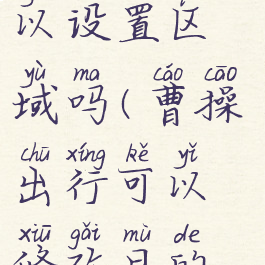 以设置区
yù ma cáo cāo
域吗(曹操
chū xíng kě yǐ
出行可以
xiū gǎi mù de